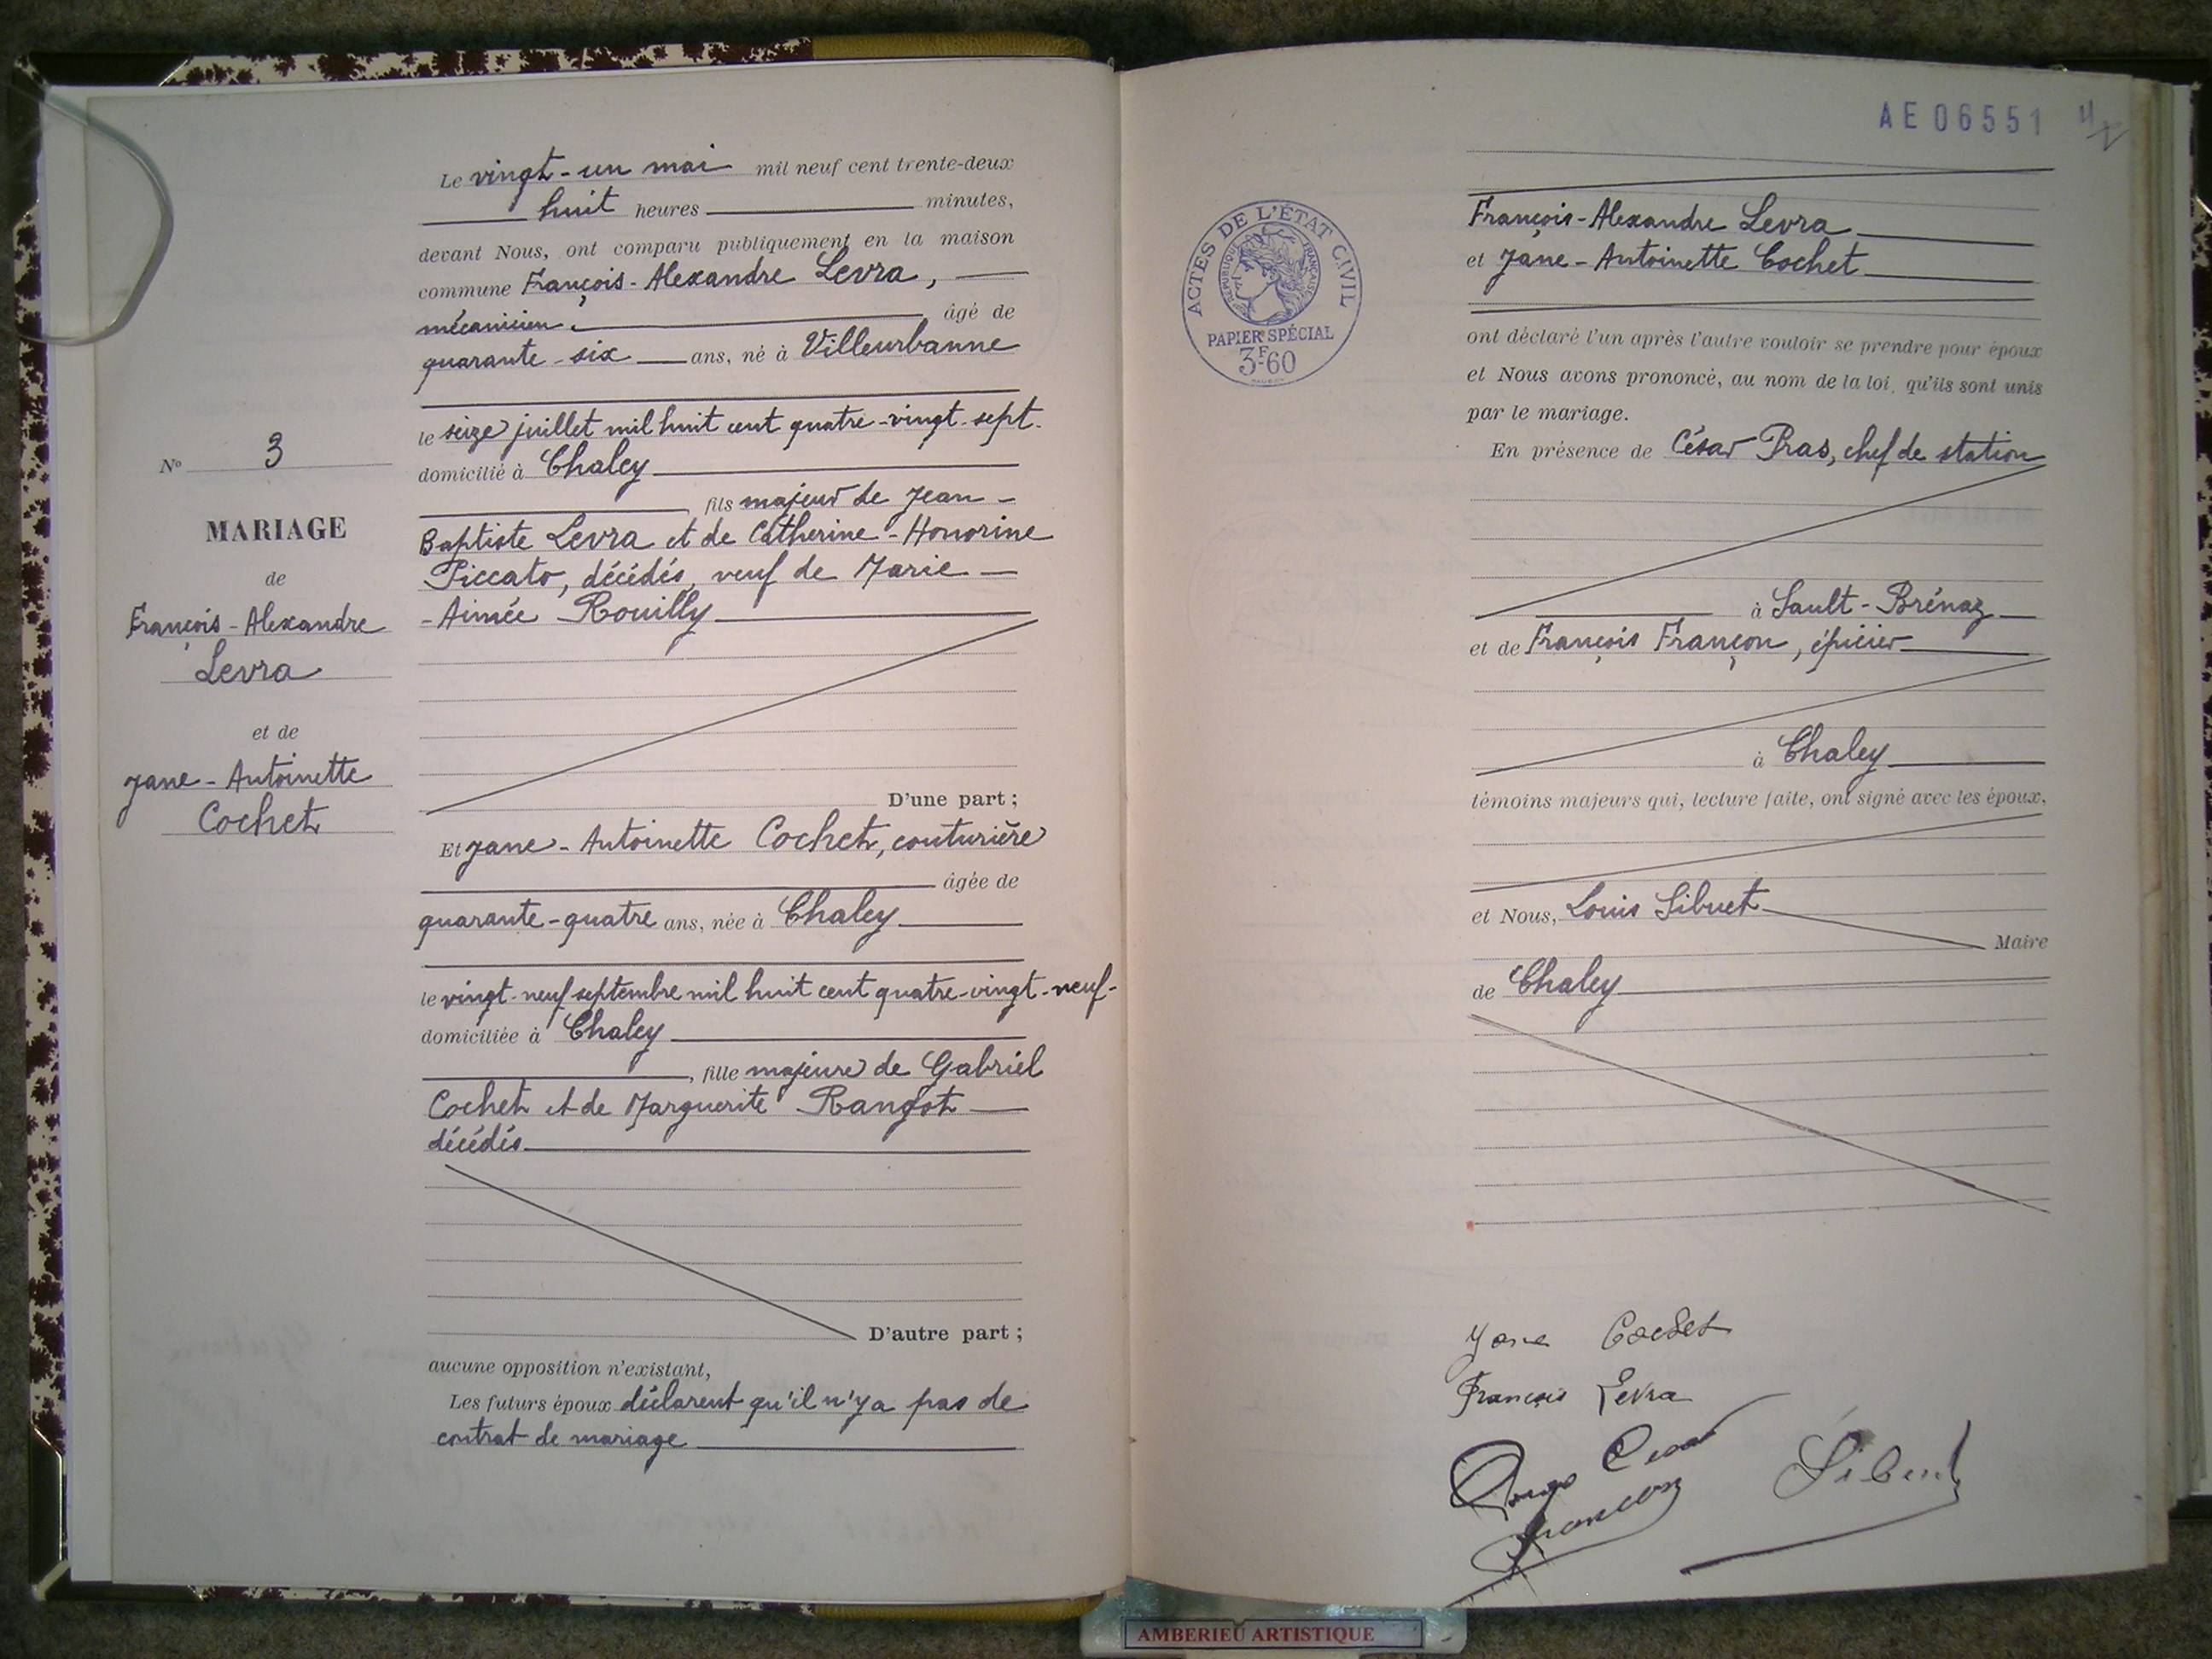 Le vingt-un mai mil neuf cent trente-deux
huit heures minutes,
devant Nous, ont comparu publiquement en la maison
commune François-Alexandre Levra,
mécanicien. âgé de
quarante-six ans, né à Villeurbanne
le seize juillet mil huit cent quatre-vingt-sept.
domicilié à Chaley
, fils majeur de Jean-
Baptiste Levra et de Catherine-Honorine
Piccato, décédés, veuf de Marie-
-Aimée Rouilly
D'une part ;
Et Jane-Antoinette Cochet, couturière
âgée de
quarante-quatre ans, née à Chaley
le vingt-neuf septembre mil huit cent quatre-vingt-neuf-
domiciliée à Chaley
, fille majeure de Gabriel
Cochet et de Marguerite Rangot
décédés
D'autre part ;
aucune opposition n'existant,
Les futurs époux déclarent qu'il n'y a pas de
contrat de mariage
N° 3
MARIAGE
de
François-Alexandre
Levra
et de
Jane-Antoinette
Cochet
AE06551
ACTES DE L'ÉTAT CIVIL
RÉPUBLIQUE FRANÇAISE
PAPIER SPÉCIAL
3F60
François-Alexandre Levra
et Jane-Antoinette Cochet
ont déclaré l'un après l'autre vouloir se prendre pour époux
et Nous avons prononcé, au nom de la loi, qu'ils sont unis
par le mariage.
En présence de César Pras, chef de station
à Sault-Brénaz
et de François Françon, épicier
à Chaley
témoins majeurs qui, lecture faite, ont signé avec les époux,
et Nous, Louis Sibuet
Maire
de Chaley
Jane Cochet
François Levra
Cesar
Françon
Sibuet
AMBERIEU ARTISTIQUE